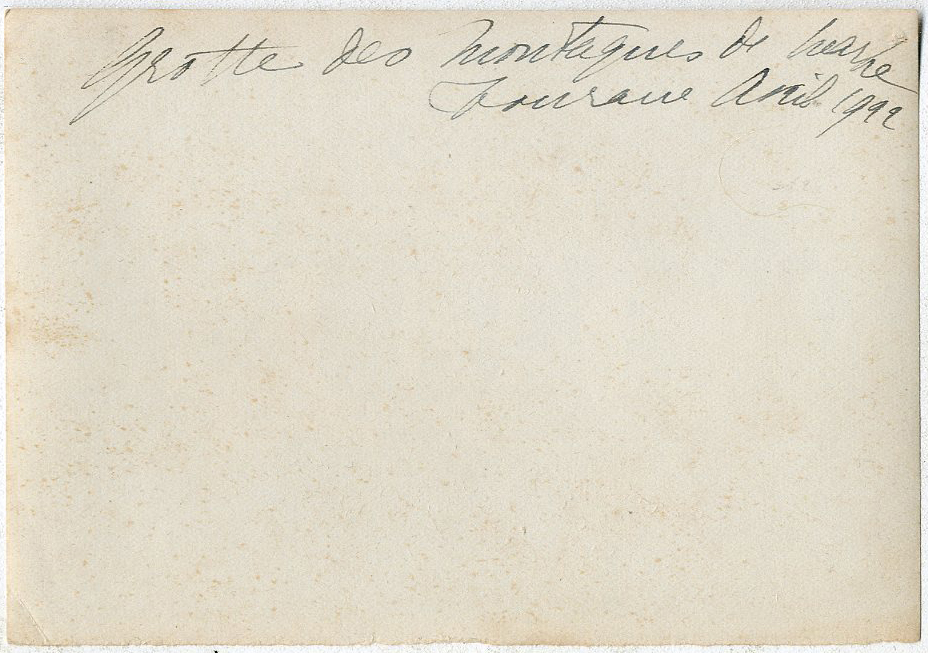 Grotte des Montagnes de marbre
Tourane Avril 1922